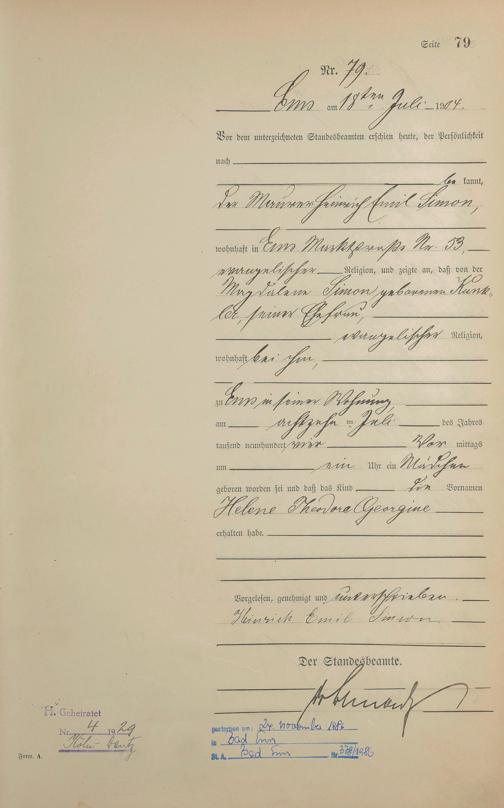 Seite 79
Nr. 79.
Ems am 18ten Juli 1904.
Vor dem unterzeichneten Standesbeamten erschien heute, der Persönlichkeit
nach
be kannt,
der Maurer Heinrich Emil Simon,
wohnhaft in Ems Marktstraße Nr. 53,
evangelischer Religion, und zeigte an, daß von der
Magdalene Simon, geborenen Kunk-
ler, seiner Ehefrau,
evangelischer Religion,
wohnhaft bei ihm,
zu Ems in seiner Wohnung,
am achtzehn ten Juli des Jahres
tausend neunhundert vier Vor mittags
um ein Uhr ein Mädchen
geboren worden sei und daß das Kind die Vornamen
Helene Theodora Georgine
erhalten habe.
Vorgelesen, genehmigt und unterschrieben.
Heinrich Emil Simon
Der Standesbeamte.
H. Geheiratet
Nr. 4 1929
Köln-Deutz
Form. A.
gestorben am: 24. November 1986
in Bad Ems
St. A. Bad Ems Nr. 378/1986